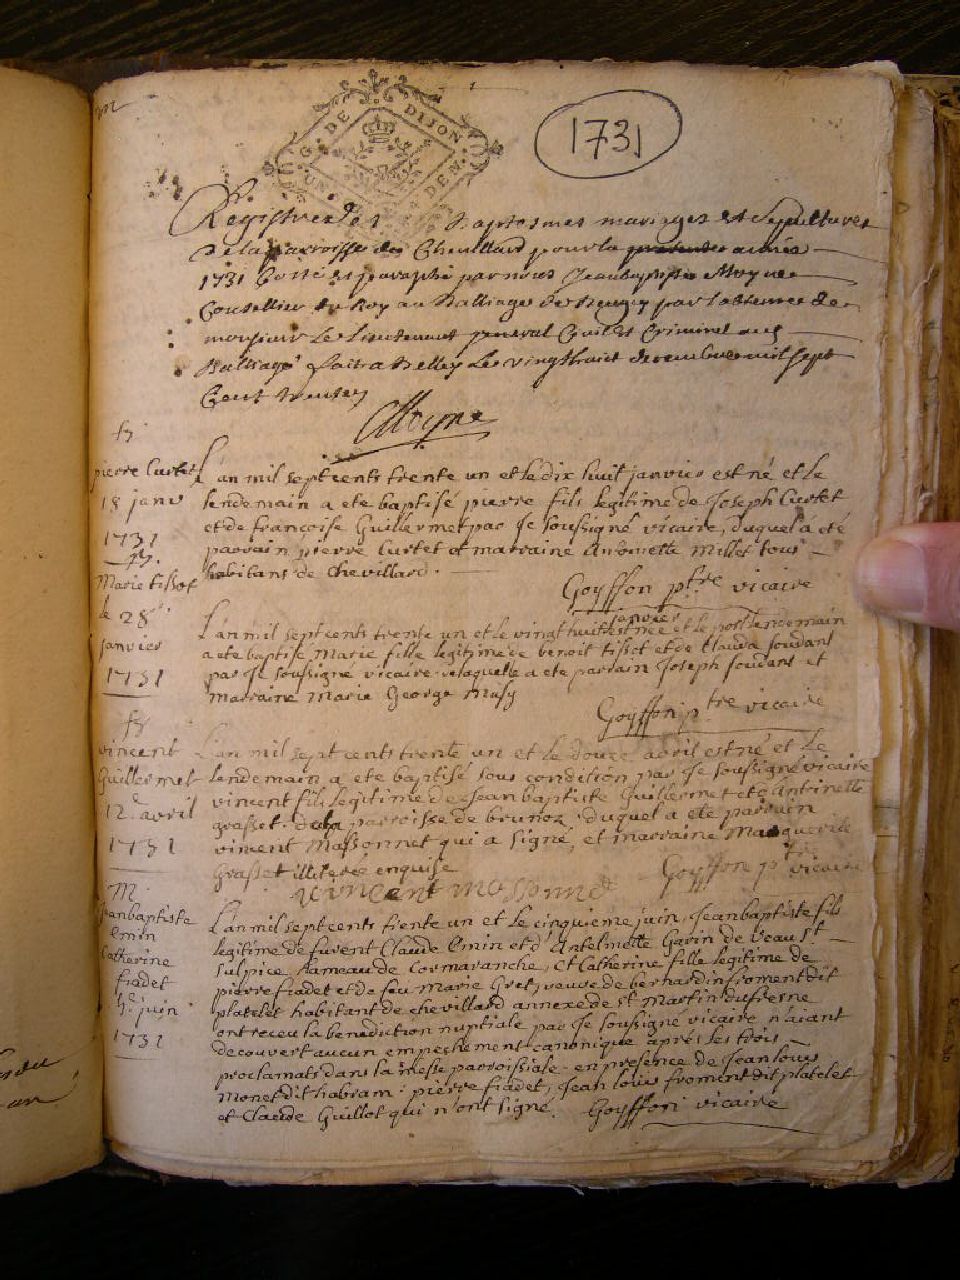 G. DE DIJON
UN DEN.
1731
Registre des Baptesmes mariages et Sepultures
de la parroisse de Chevillard pour la presente année
1731 Cotté et paraphé par nous Jean baptiste Moyne
Conseiller du Roy au Balliage de Beugey par l'absence de
monsieur Le Lieutenant general Civil et Criminel aud
Balliage fait a Belley Le vingt huict decembre mil sept
Cent trente
Moyne
pierre Curtet
18 janv
1731
L'an mil sept cents trente un et le dix huit janvier est né et le
lendemain a eté baptisé pierre fils legitime de Joseph Curtet
et de françoise Guillermet par Je soussigné vicaire, duquel a eté
parrain pierre Curtet et marraine Antoinette Millet tous
habitans de Chevillard.
Goyffon ptre vicaire
Marie tissot
le 28e
janvier
1731
janvier
L'an mil sept cents trente un et le vingt huit est née et le lendemain
a eté baptisé Marie fille legitime de benoit tissot et de Clauda foudant
par Je soussigné vicaire de laquelle a eté parrain Joseph foudant et
marraine Marie George Masy
Goyffon ptre vicaire
vincent
Guillermet
12e avril
1731
L'an mil sept cents trente un et le douze avril est né et le
lendemain a eté baptisé sous condition par Je soussigné vicaire
vincent fils legitime de Jean baptiste Guillermet et d'Antoinette
grasset de la parroisse de brenoz, duquel a eté parrain
vincent Massonnet qui a signé, et marraine Marguerite
Grasset illiterée enquise
Goyffon ptre vicaire
vincent massonnet
M.
Jean baptiste
Emin
Catherine
fiadet
5e juin
1731
L'an mil sept cents trente un et le cinquieme juin, Jean baptiste fils
legitime de furent Claude Emin et d'Antelmette Gavin de veau St
Sulpice hameau de Cormaranche, et Catherine fille legitime de
pierre fiadet et de feu Marie Gret, veuve de bernardin froment dit
platelet habitant de chevillard annexe de St Martin du fresne
ont receu la benediction nuptiale par Je soussigné vicaire n'aiant
decouvert aucun empechement canonique aprés les trois
proclamats dans la messe parroissiale en presence de Jean louis
Monet dit habram: pierre fiadet, Jean louis froment dit platelet
et Claude Guillot qui n'ont signé. Goyffon vicaire